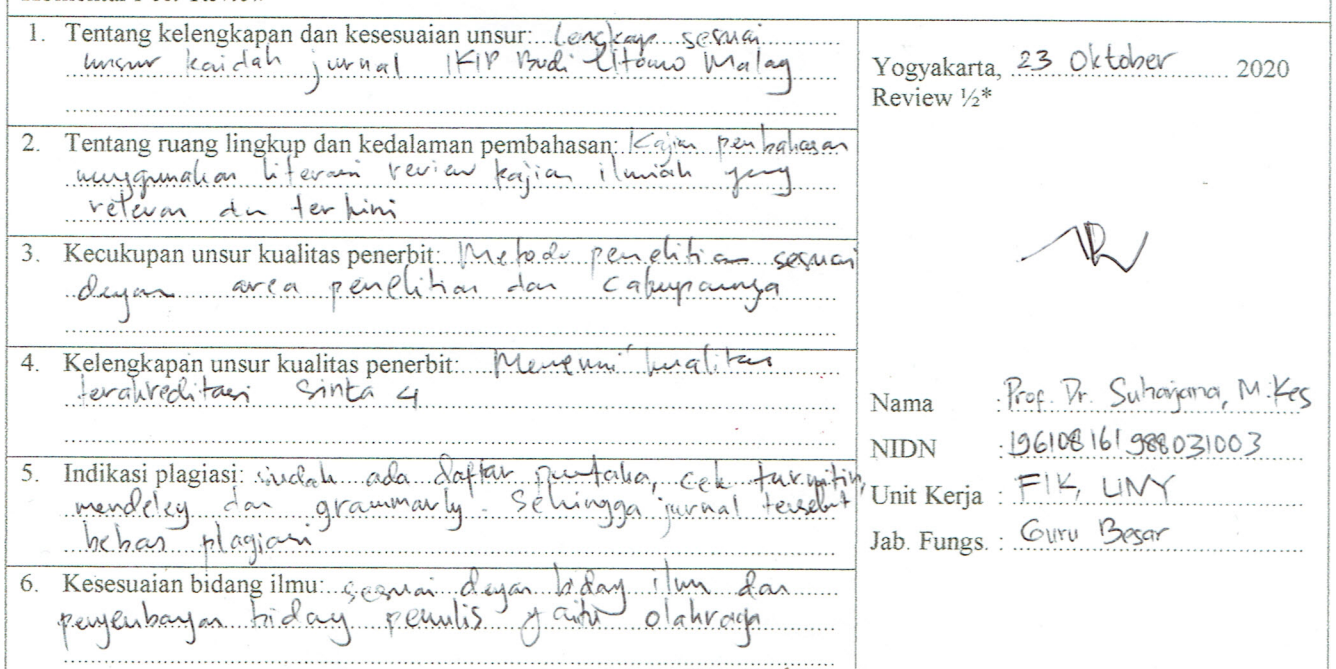 1. Tentang kelengkapan dan kesesuaian unsur: Lengkap sesuai
unsur kaidah jurnal IKIP Budi Utomo Malag
2. Tentang ruang lingkup dan kedalaman pembahasan: Kajian pembahasan
menggunakan literasi review kajian ilmiah yang
relevan dan terkini
3. Kecukupan unsur kualitas penerbit: Metode penelitian sesuai
dengan area penelitian dan cakupannya
4. Kelengkapan unsur kualitas penerbit: Memenuhi kualitas
terakreditasi Sinta 4
5. Indikasi plagiasi: sudah ada daftar pustaka, cek turnitin,
mendeley dan grammarly. Sehingga jurnal tersebut
bebas plagiasi
6. Kesesuaian bidang ilmu: sesuai dengan bidang ilmu dan
pengembangan bidang penulis yaitu olahraga
Yogyakarta, 23 Oktober 2020
Review ½*
Nama : Prof. Dr. Suharjana, M.Kes
NIDN : 196108161988031003
Unit Kerja : FIK, UNY
Jab. Fungs. : Guru Besar